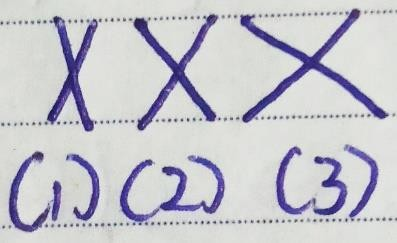 X X X
(1) (2) (3)